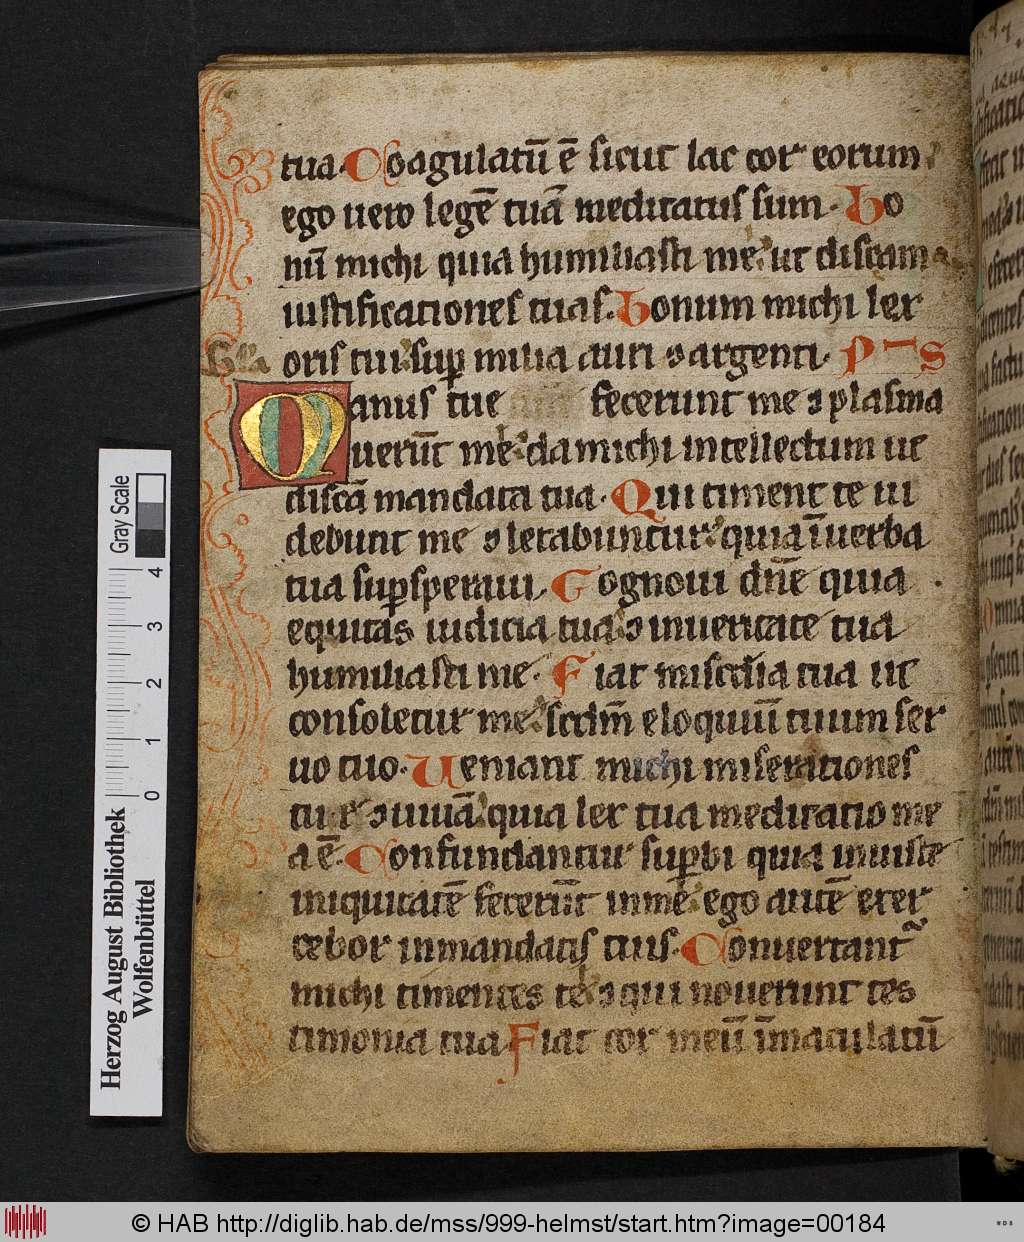 tua. Coagulatū ē sicut lac cor eorum.
ego uero legē tuā meditatus sum. Bo
nū michi quia humiliasti me. ut discam
iustificationes tuas. Bonum michi lex
oris tui. sup milia auri ⁊ argenti. P S
Manus tue fecerunt me ⁊ plasma
uerūt me. da michi intellectum ut
discā mandata tua. Qui timent te ui
debunt me ⁊ letabuntur. quia ī uerba
tua sup speraui. Cognoui dn̄e quia
equitas iudicia tua. ⁊ in ueritate tua
humiliasti me. Fiat mis̄cd̄ia tua ut
consoletur me. scdm̄ eloquiū tuum ser
uo tuo. Ueniant michi miserationes
tue ⁊ uiuā. quia lex tua meditatio me
a ē. Confundantur supbi quia iniuste
iniquitatē fecerūt in me. ego autē exer
cebor in mandatis tuis. Conuertant
michi timentes te. ⁊ qui nouerunt tes
timonia tua. Fiat cor meū īmaculatū
Gray Scale
0 1 2 3 4
Herzog August Bibliothek
Wolfenbüttel
© HAB http://diglib.hab.de/mss/999-helmst/start.htm?image=00184